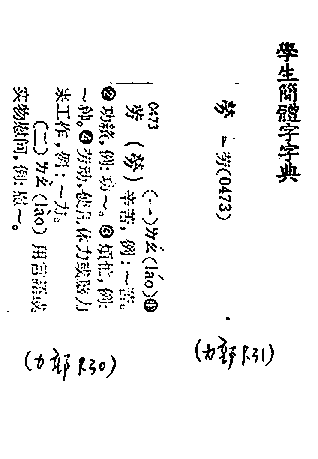 學生簡體字字典
= 劳(0473)
(力部 P.31)
0473 (一)ㄌㄠˊ(láo)❶
劳 (勞) 辛苦,例:~苦。
❷功績,例:功~。❸烦忙,例:
❹劳动,使用体力或脑力
某工作,例:~力。
(二)ㄌㄠˋ(lào) 用言語或
实物慰问,例:~。
(力部 P.30)